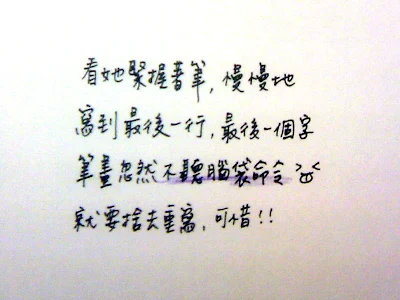 看她緊握著筆，慢慢地
寫到最後一行，最後一個字
筆畫忽然不聽腦袋命令
就要捨去重寫，可惜!!